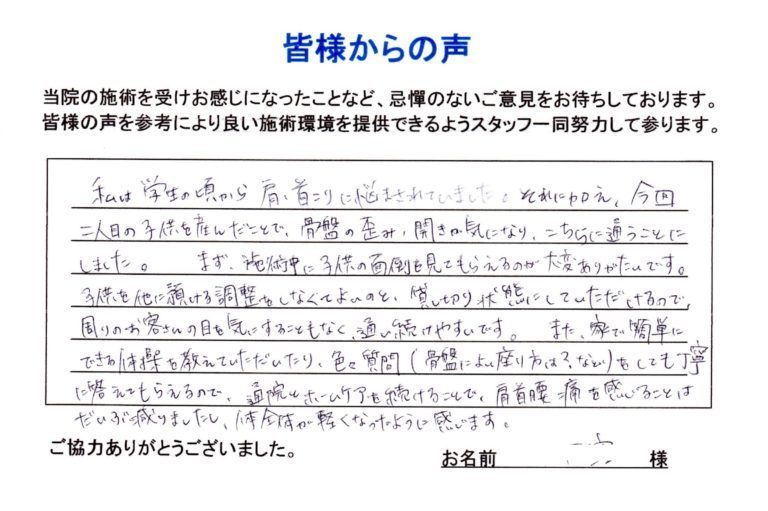 皆様からの声
当院の施術を受けお感じになったことなど、忌憚のないご意見をお待ちしております。
皆様の声を参考により良い施術環境を提供できるようスタッフ一同努力して参ります。
私は学生の頃から肩、首こりに悩まされていました。それに加え、今回
二人目の子供を産んだことで、骨盤の歪み、開きが気になり、こちらに通うことに
しました。 まず、施術中に子供の面倒を見てもらえるのが大変ありがたいです。
子供を他に預ける調整をしなくてよいのと、貸し切り状態にしていただけるので、
周りのお客さんの目を気にすることもなく、通い続けやすいです。 また、家で簡単に
できる体操を教えていただいたり、色々質問(骨盤によい座り方は?など)をしても丁寧
に答えてもらえるので、通院とホームケアを続けることで、肩首腰の痛を感じることは
だいぶ減りましたし、体全体が軽くなったように感じます。
ご協力ありがとうございました。
お名前 様